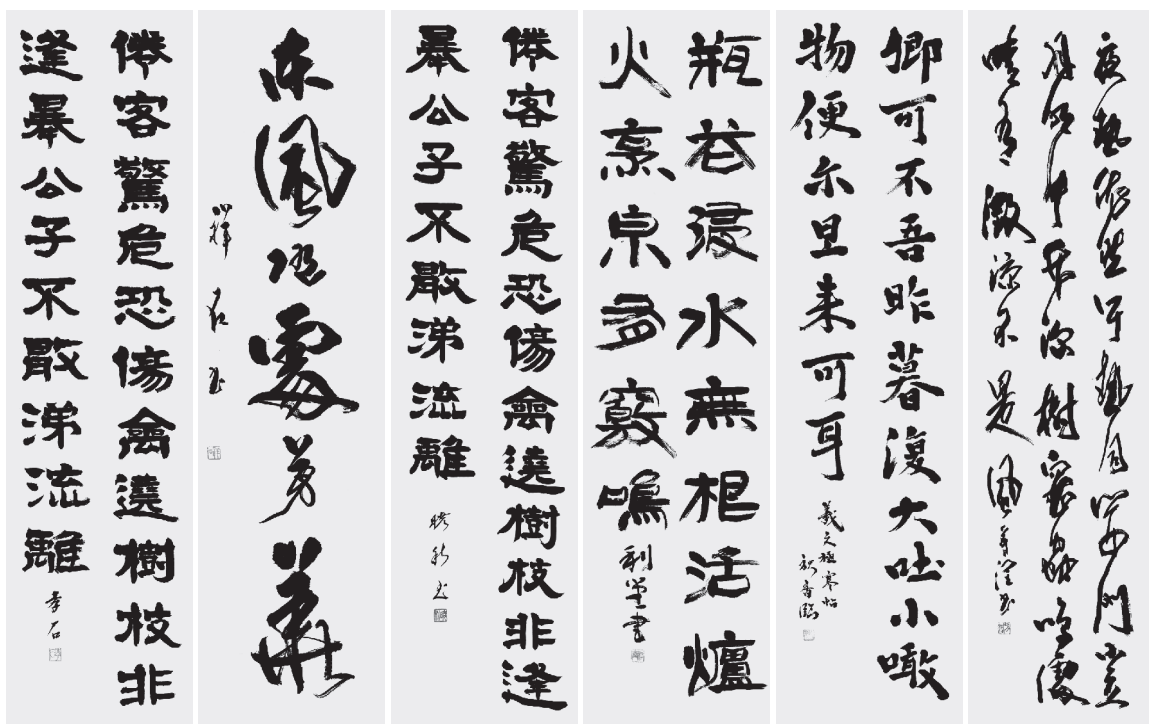 夜熱依然午熱同開門小立
月明中竹深樹密蟲鳴處
時有微涼不是風
卿可不吾昨暮復大吐小噉
物便尔旦來可耳
羲之極寒帖
瓶花浸水無根活爐
火烹泉多竅鳴 利堂書
倦客驚危恐傷禽遶樹枝非逢
暴公子不敢涕流離
東風處華
倦客驚危恐傷禽遶樹枝非
逢暴公子不敢涕流離